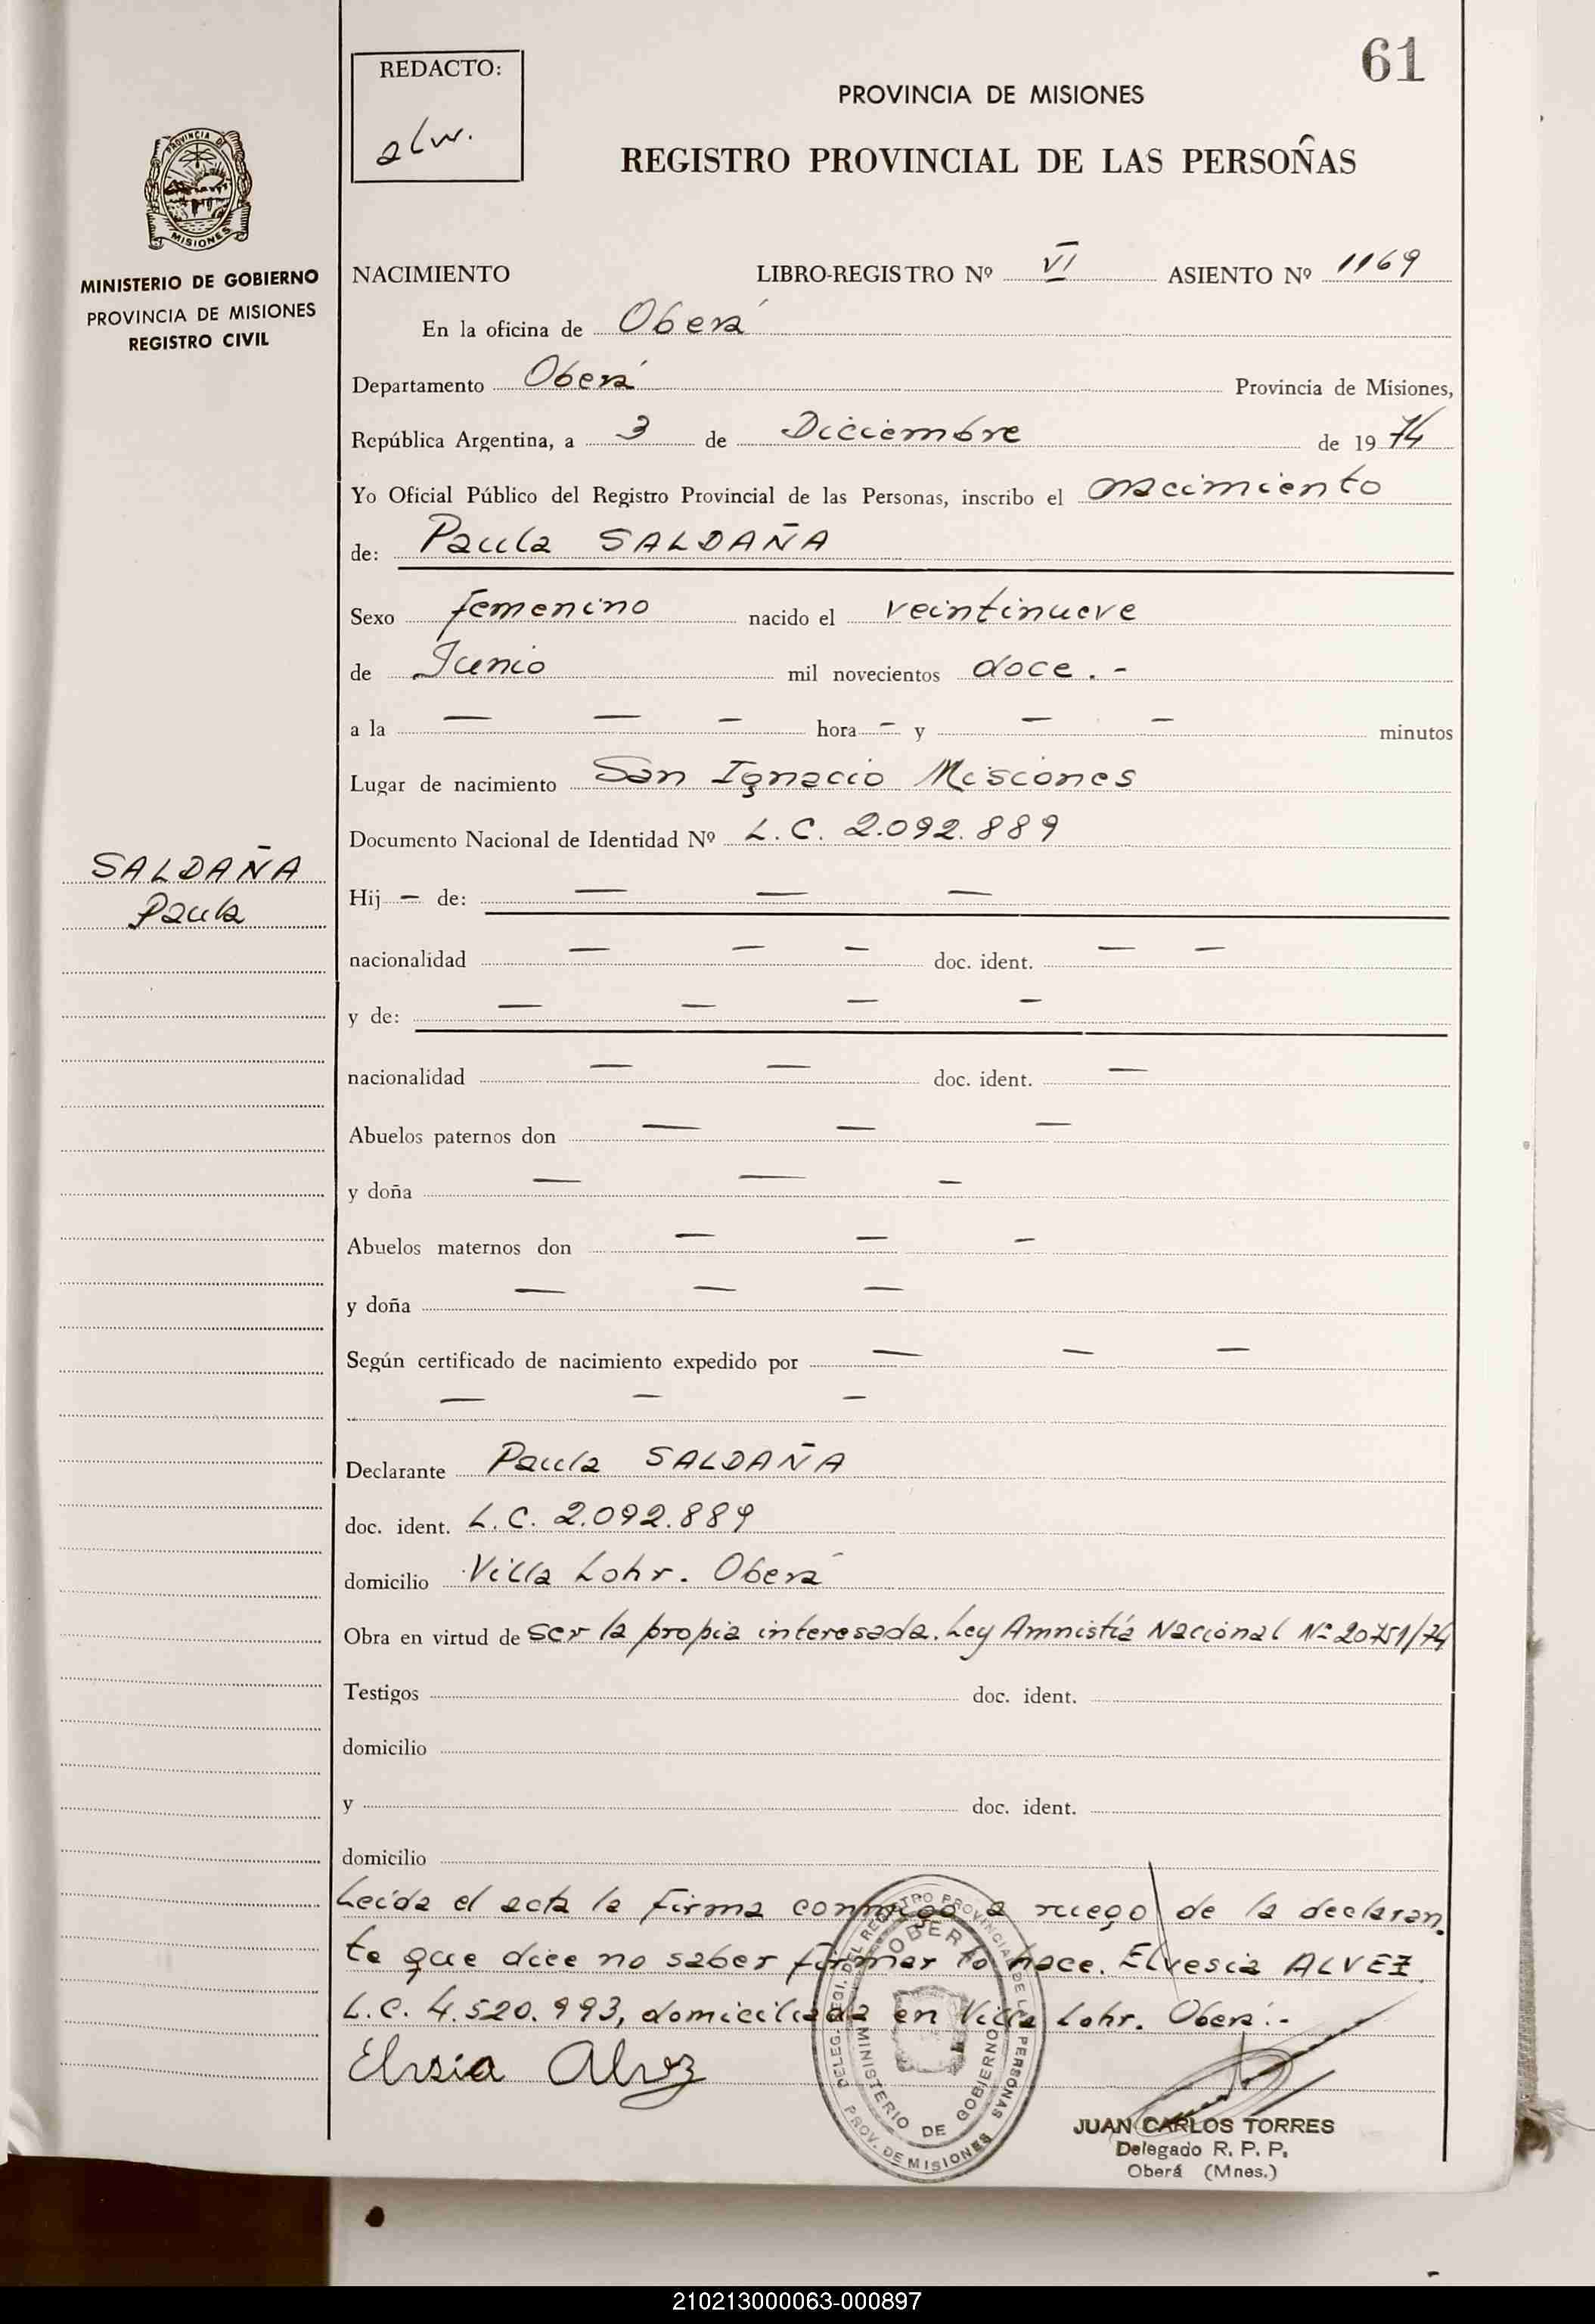 61
REDACTO:
alw.
PROVINCIA DE MISIONES
REGISTRO PROVINCIAL DE LAS PERSOÑAS
PROVINCIA DE
MISIONES
MINISTERIO DE GOBIERNO
PROVINCIA DE MISIONES
REGISTRO CIVIL
NACIMIENTO LIBRO-REGISTRO Nº VI ASIENTO Nº 1169
En la oficina de Oberá
Departamento Oberá Provincia de Misiones,
República Argentina, a 3 de Diciembre de 1974
Yo Oficial Público del Registro Provincial de las Personas, inscribo el nacimiento
de: Paula SALDAÑA
Sexo femenino nacido el veintinueve
de Junio mil novecientos doce.-
a la — — — hora - y — — minutos
Lugar de nacimiento San Ignacio Misiones
Documento Nacional de Identidad Nº L.C. 2.092.889
SALDAÑA
Paula
Hij — de: — — —
nacionalidad — — — doc. ident. — —
y de: — — — —
nacionalidad — — doc. ident. —
Abuelos paternos don — — —
y doña — — —
Abuelos maternos don — — —
y doña — — —
Según certificado de nacimiento expedido por — — —
— — —
Declarante Paula SALDAÑA
doc. ident. L.C. 2.092.889
domicilio Villa Lohr. Oberá
Obra en virtud de ser la propia interesada. Ley Amnistía Nacional Nº 20751/74
Testigos doc. ident.
domicilio
y doc. ident.
domicilio
Leída el acta la firma conmigo a ruego de la declaran.
te que dice no saber firmar lo hace. Elvesia ALVEZ
L.C. 4.520.993, domiciliada en Villa Lohr. Oberá.-
Elvsia Alvez
DEL REGISTRO PROVINCIAL DE LAS PERSONAS
PROV. DE MISIONES
MINISTERIO DE GOBIERNO
JUAN CARLOS TORRES
Delegado R. P. P.
Oberá (Mnes.)
210213000063-000897